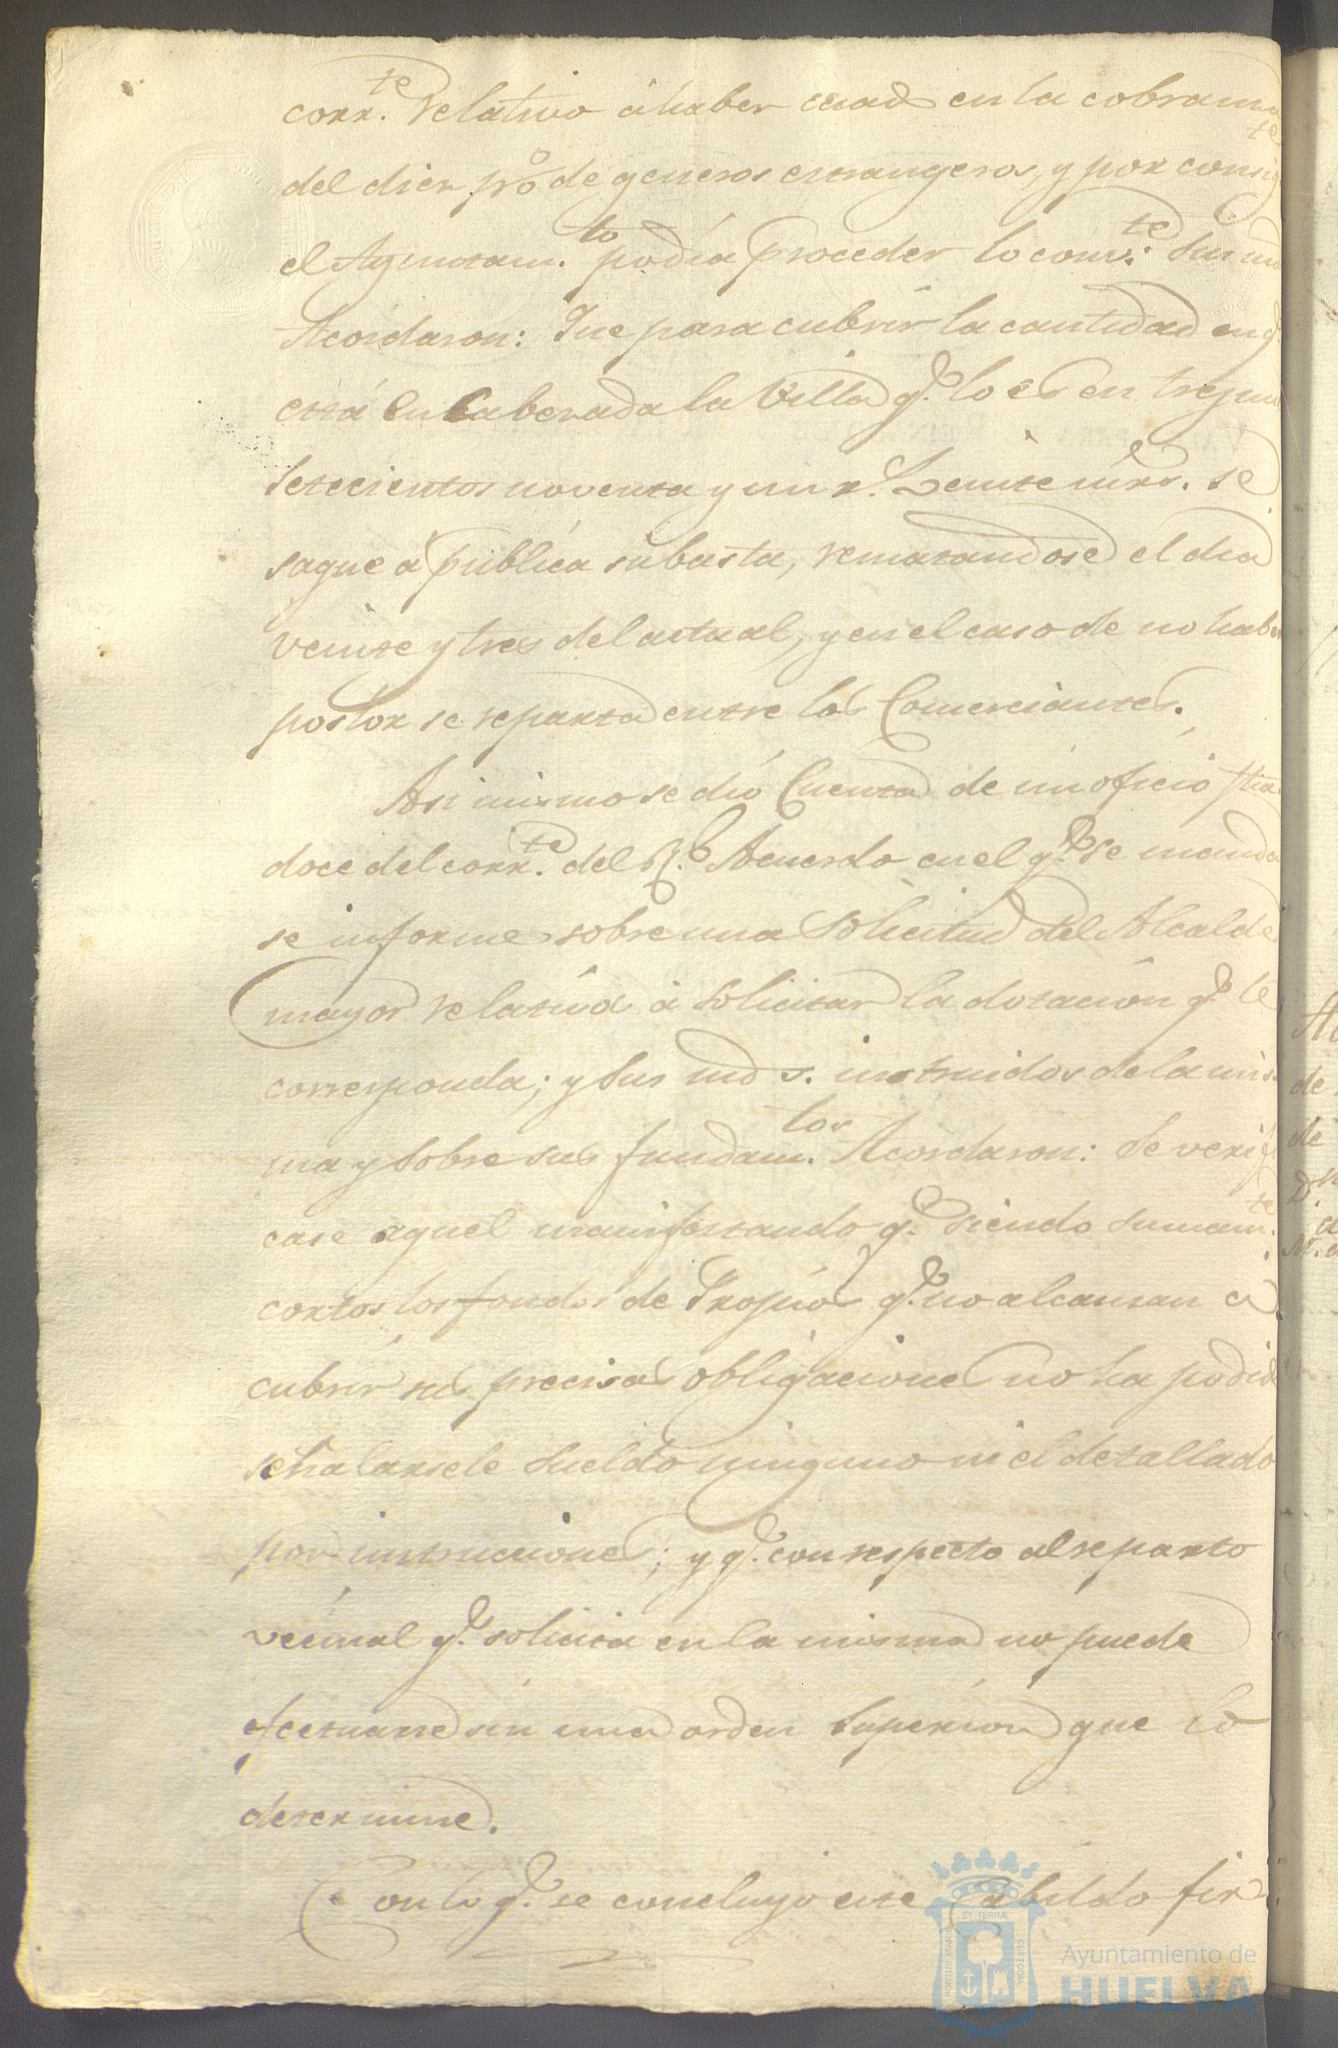 corr.te relativo á haber cesado en la cobranza
del diez p%o de generos estrangeros, y por consig.te
el Ayuntam.to podia proceder lo conv.te Sus md
Acordaron: Que para cubrir la cantidad en q.e
está encabezada la Villa q.e lo es en tres mil
setecientos noventa y un r.s veinte mrs. se
saque á pública subasta, rematandose el dia
veinte y tres del actual, y en el caso de no haber
postor se reparta entre los Comerciantes.
Asi mismo se dió Cuenta de un oficio fha
doce del corr.te del R.l Acuerdo en el q.e se manda
se informe sobre una Solicitud del Alcalde
mayor relativa á solicitar la dotacion q.e le
corresponda; y Sus md s. instruidos de la mis
ma y sobre sus fundam.tos Acordaron: Se verifi
case aquel manifestando q.e siendo sumam.te
cortos los fondos de Propios q.e no alcanzan á
cubrir sus precisas obligaciones no ha podido
señalarsele Sueldo ninguno ni el detallado
por instrucciones; y q.e con respecto al reparto
vecinal q.e solicita en la misma no puede
efectuarse sin una orden Superior que lo
determine.
Con lo q.e se concluyó este Cabildo fir
PORTUS MARIS
ET TERRÆ
CUSTODIA
Ayuntamiento de
HUELVA